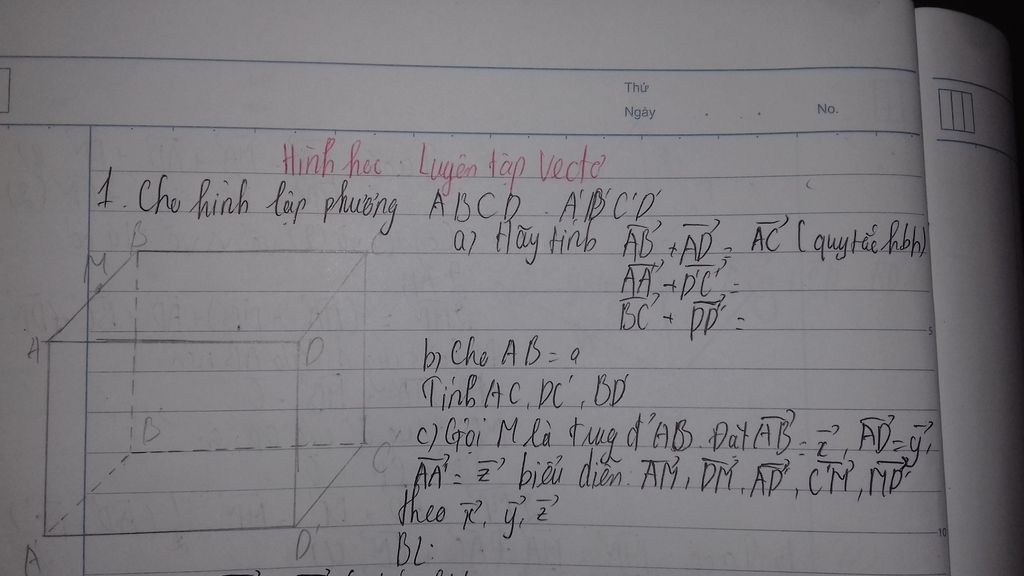 Thứ
Ngày
No.
Hình học: Luyện tập Vectơ
1. Cho hình lập phương ABCD. A'B'C'D'
a) Hãy tính AB⃗ + AD⃗ = AC⃗ (quy tắc hbh)
AA'⃗ + D'C'⃗ =
BC⃗ + DD'⃗ =
b) Cho AB = a
Tính AC, DC', BD'
c) Gọi M là trug đ' AB. Đặt AB⃗ = x⃗, AD⃗ = y⃗,
AA'⃗ = z⃗ biểu diễn AM⃗, DM⃗, AD'⃗, C'M⃗, MD'⃗
theo x⃗, y⃗, z⃗
BL:
B
C
M
A
D
B'
C'
A'
D'
5
10